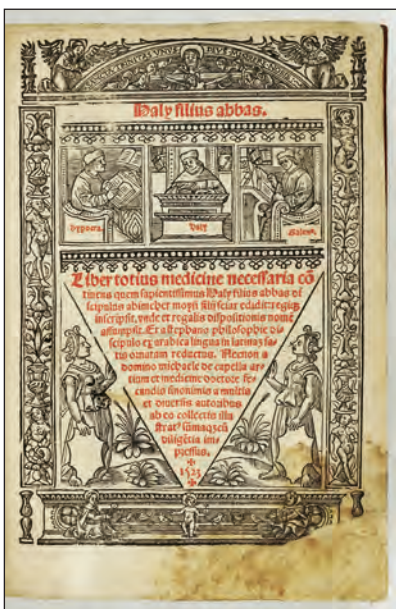 SANCTA TRINITAS UNUS DEUS MISERERE NOBIS
Haly filius abbas.
ypocra.
Haly
Galenus.
Liber totius medicine necessaria cō
tinens quem sapientissimus Haly filius abbas di
scipulus abimeher moysi filii seiar edidit: regiqz
inscripsit. unde et regalis dispositionis nomē
assumpsit. Et a stephano philosophie di-
scipulo ex arabica lingua in latinaz sa-
tis ornatam reductus. Necnon a
domino michaele de capella ar-
tium et medicine doctore fe-
cundis sinonimis a multis
et diversis autoribus
ab eo collectis illu-
stratꝰ sūmaqzcū
diligētia im-
pressus.
1523